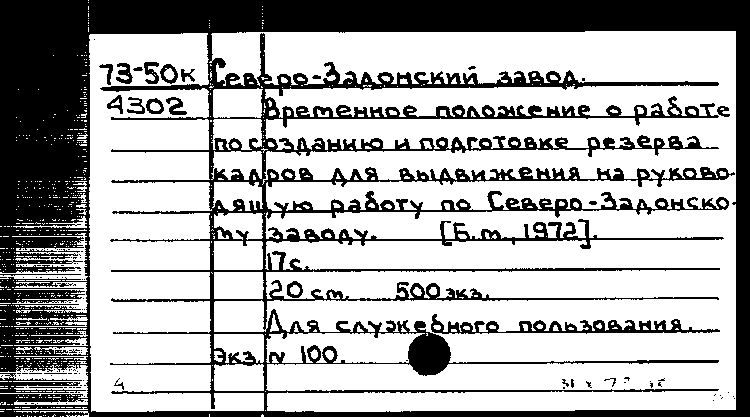 73-50к Северо-Задонский завод.
4302 Временное положение о работе
по созданию и подготовке резерва
кадров для выдвижения на руково-
дящую работу по Северо-Задонско-
му заводу. [Б.м., 1972].
17 с.
20 см. 500 экз.
Для служебного пользования.
Экз. N 100.
4